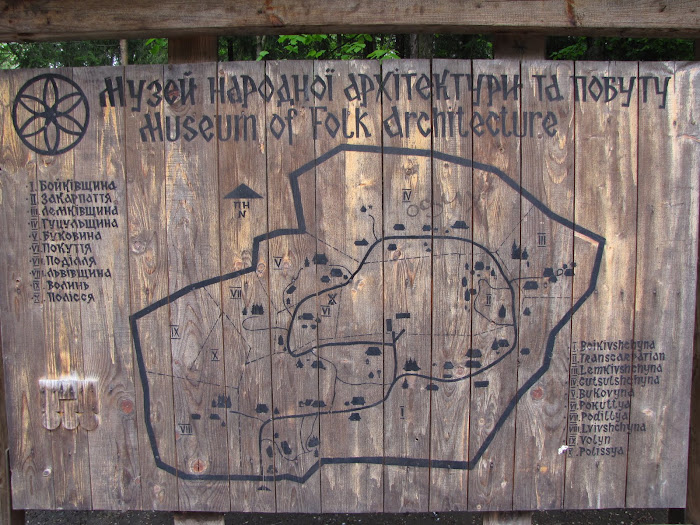 Музей народної архітектури та побуту
Museum of Folk Architecture
I. Бойківщина
II Закарпаття
III Лемківщина
IV Гуцульщина
V Буковина
VI Покуття
VII Поділля
VIII Львівщина
IX Волинь
X Полісся
ПН
N
IV
III
V
VII
II
VI
X
IX
IX
I
VII
I. Bojkivshchyna
II. Transcarpatian
III. Lemkivshchyna
IV Gutsulshchyna
V Bukovyna
VI Pokuttya
VII Podillya
VIII Lvivshchyna
IX Volyn
X Polissya